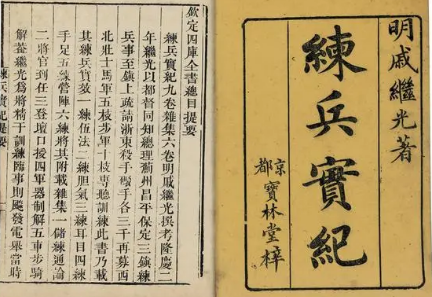 明戚繼光著
練兵實紀
京都寶林堂梓
欽定四庫全書總目提要
練兵實紀九卷雜集六卷明戚繼光撰考隆慶二
年繼光以都督同知總理薊州昌平保定三鎮練
兵事至鎮上疏請浙東殺手礮手各三千再募西
北壯士馬軍五枝步軍十枝專聽訓練此書乃載
其練兵實效一練伍法二練胆氣三練耳目四練
手足五練營陣六練將其附載雜集一儲練通論
二將官到任三登壇口授四軍器制解五車步騎
解蓋繼光爲將精于訓練臨事則飈發電舉當時
練兵實紀提要